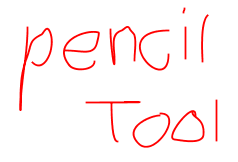 pencil
Tool